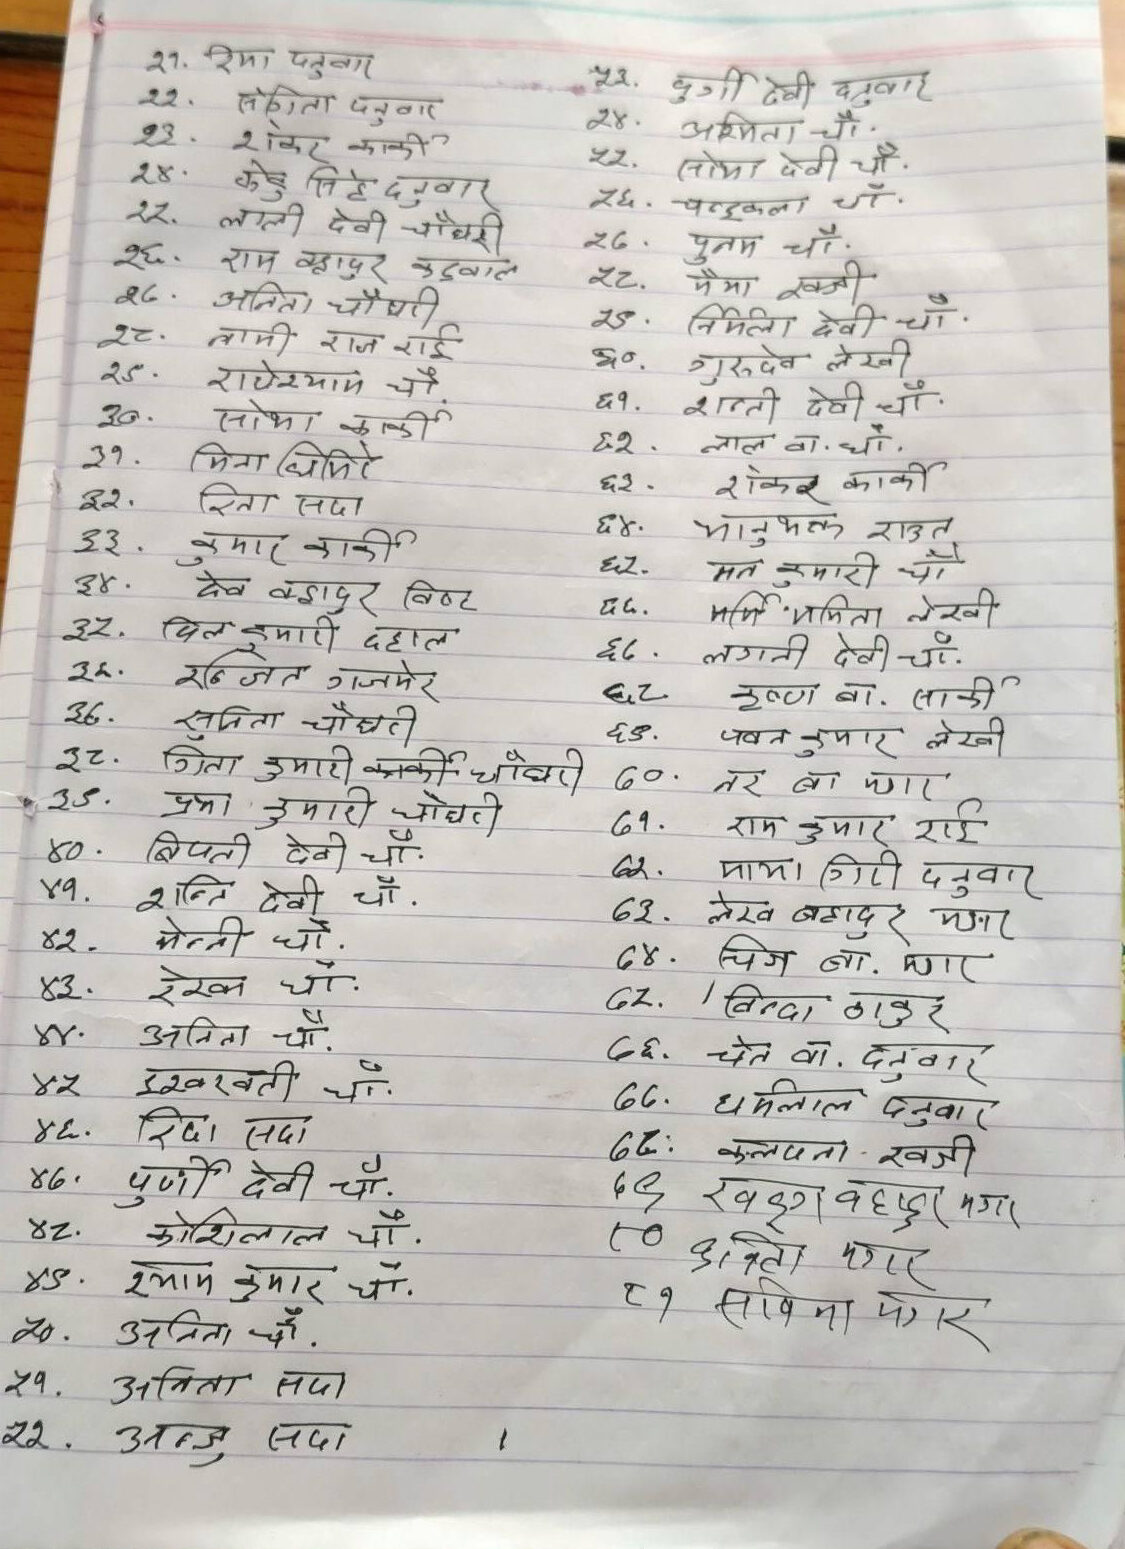 २१. रिमा दनुवार
२२. संगिता दनुवार
२३. शंकर कार्की
२४. सिहं दनुवार
२५. लाली देवी चौधरी
२६. राम बहादुर कडवाल
२७. अनिता चौधरी
२८. नामी राज राई
२९. राधेश्याम चौ.
३०. सोभा कार्की
३१. मिना घिमिरे
३२. रिता सदा
३३. कुमार कार्की
३४. देव बहादुर विष्ट
३५. दिल कुमारी दहाल
३६. रन्जित गजमेर
३७. सुमिता चौधरी
३८. गिता कुमारी कार्की चौधरी
३९. प्रभा कुमारी चौधरी
४०. बिपती देवी चौ.
४१. शान्ति देवी चौ.
४२. मेन्ली चौ.
४३. रेखा चौ.
४४. अनिता चौ.
४५ इश्वरवती चौ.
४६. रिदा सदा
४७. पुर्णी देवी चौ.
४८. कोशिलाल चौ.
४९. श्याम कुमार चौ.
५०. अनिता चौ.
५१. अनिता सदा
५२. अन्जु सदा ।
५३. दुर्गी देवी दनुवार
५४. अस्मिता चौ.
५५. सोभा देवी चौ.
५६. चन्द्रकला चौ.
५७. पुनम चौ.
५८. मैमा खत्री
५९. निर्मला देवी चौ.
६०. गुरुदेव लेखी
६१. शान्ती देवी चौ.
६२. लाल बा. चौ.
६३. शंकर कार्की
६४. भानुभक्त राउत
६५. मन कुमारी चौ
६६. ममिता लेखी
६७. लगनी देवी चौ.
६८ कृष्ण बा. सार्की
६९. पवन कुमार लेखी
७०. नर बा मगर
७१. राम कुमार राई
७२. माया गिरी दनुवार
७३. लेख बहादुर मगर
७४. चित्र बा. मगर
७५. । बिन्दा ठाकुर
७६. चेत बा. दनुवार
७७. धर्मलाल दनुवार
७८: कल्पना खत्री
७९ खड्ग बहादुर मगर
८० अनिता मगर
८१ सबिना मगर